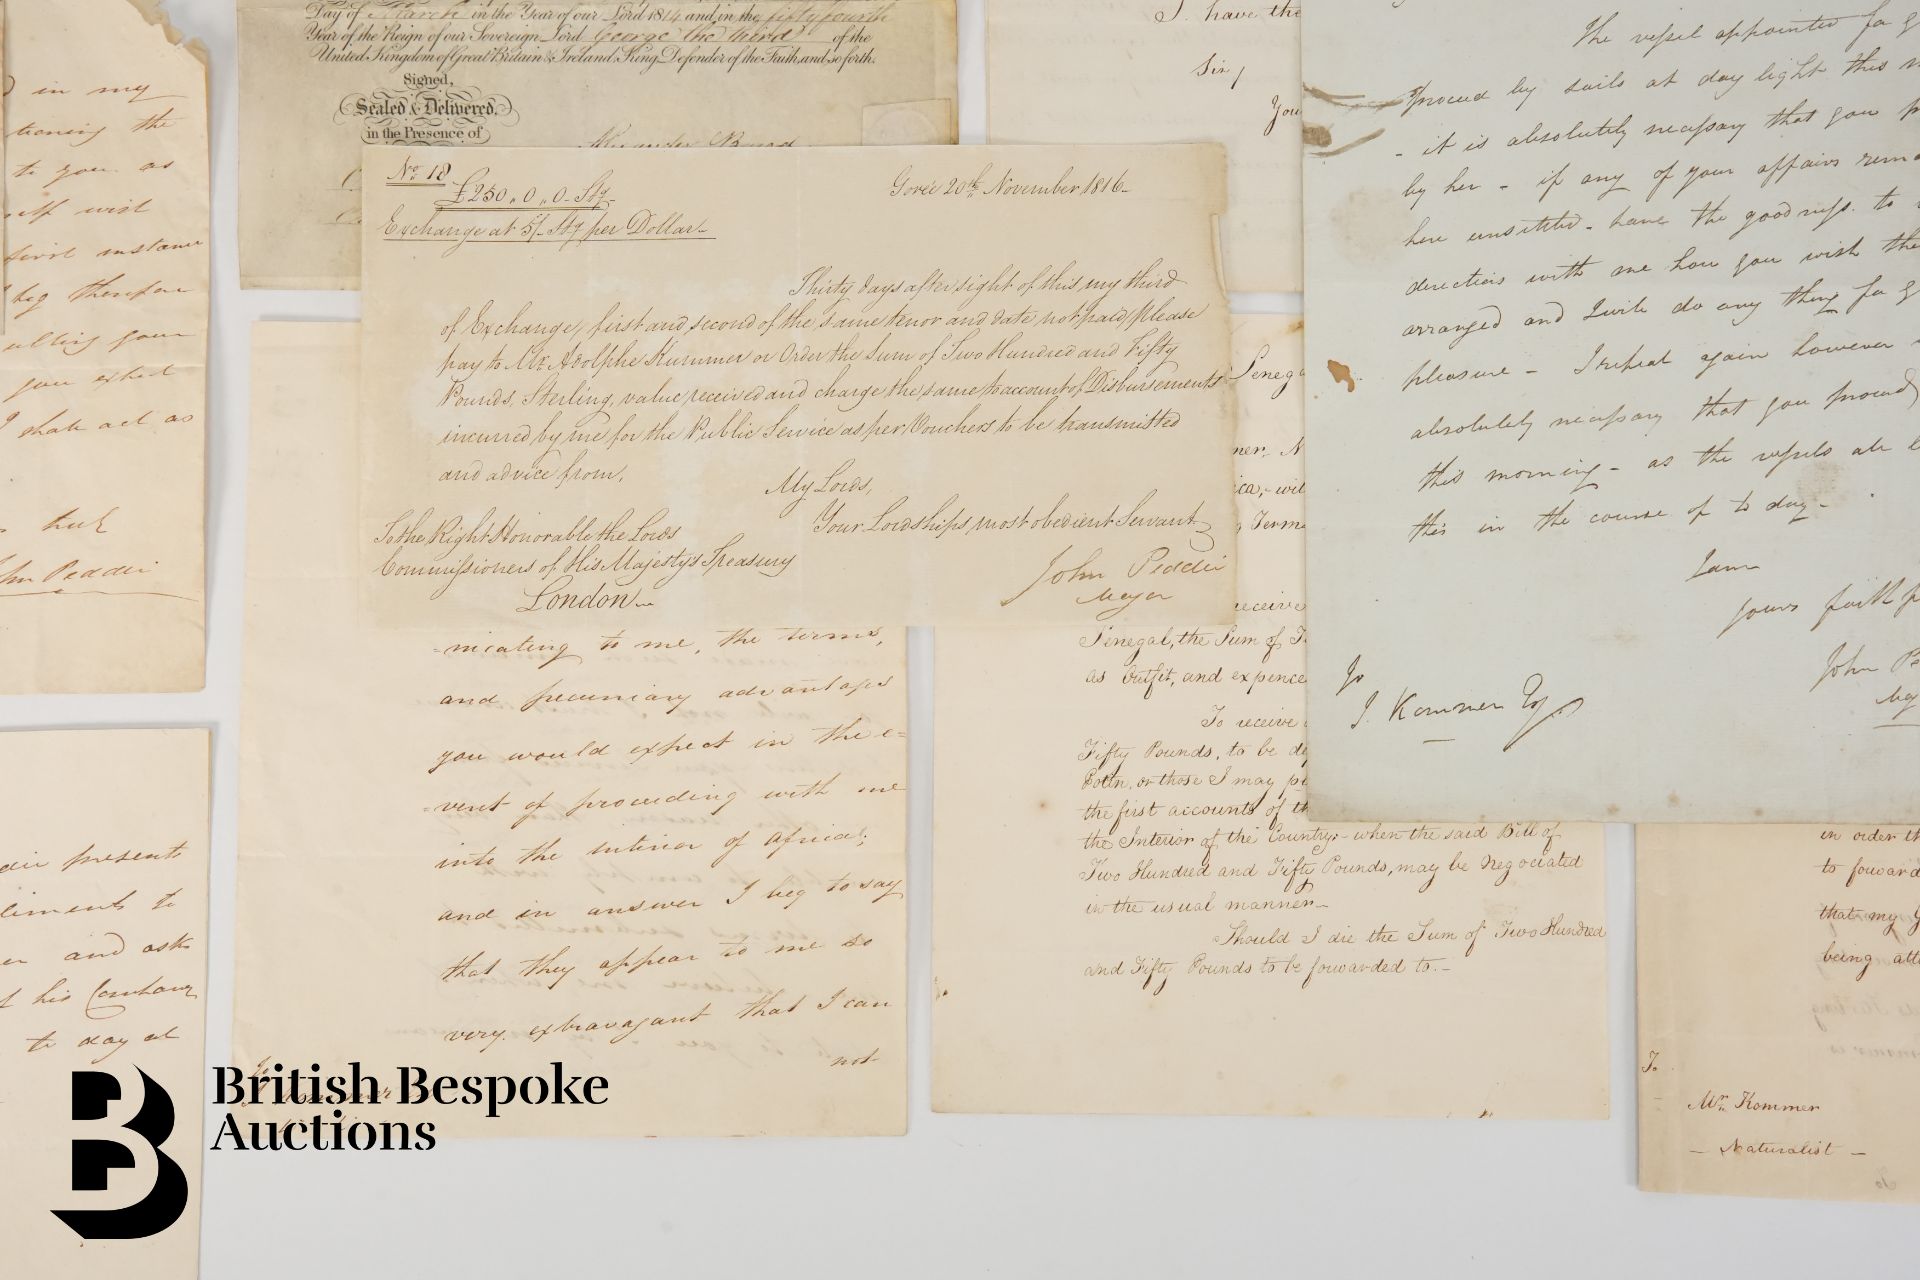 Day of March in the Year of our Lord 1814 and in the fifty fourth
Year of the Reign of our Sovereign Lord George the third of the
United Kingdom of Great Britain & Ireland, King, Defender of the Faith, and so forth.
Signed,
Sealed & Delivered,
in the Presence of
No. 18
£250 ,, 0 ,, 0 - Stg.
Exchange at 5/- Stg per Dollar
Gorée 20th November 1816-
Thirty days after sight of this my third
of Exchange, first and second of the same tenor and date not paid, please
pay to Mr. Adolphe Kummer or Order the Sum of Two Hundred and Fifty
Pounds, Sterling, value received and charge the same to account of Disbursements
incurred by me for the Public Service as per Vouchers to be transmitted
and advice from,
My Lords,
Your Lordships most obedient Servant
To the Right Honorable the Lords
Commissioners of His Majesty's Treasury
London
John Peddie
Major
in my
tioning the
to you as
self wish
first instance
beg therefore
you expect
I shall act as
John Peddie
presents
liments to
and ask
of his Company
to day at
-nicating to me, the terms,
and pecuniary advantages
you would expect in the e-
-vent of proceeding with me
into the interior of Africa;
and in answer I beg to say
that they appear to me so
very extravagant that I can
not
I have the
Sir,
You
Seneg
receive
Senegal, the Sum of
as Outfit, and expence
To receive
Fifty Pounds, to be de
or those I may
the first accounts of th
the Interior of the Country;- when the said Bill of
Two Hundred and Fifty Pounds, may be Negociated
in the usual manner-
Should I die the Sum of Two Hundred
and Fifty Pounds to be forwarded to.-
The vessel appointed for
proceed by sails at day light this
- it is absolutely necessary that you
by her - if any of your affairs
here unsettled - have the goodness to
directions with me how you wish
arranged and I will do any thing for
pleasure - I repeat again however
absolutely necessary that you proceed
this morning - as the vessels
this in the course of to day -
I am
yours faith
John Pe
To
Kummer Esq.
in order
to forward
that my
being
To
Mr. Kummer
- Naturalist -
British Bespoke
Auctions